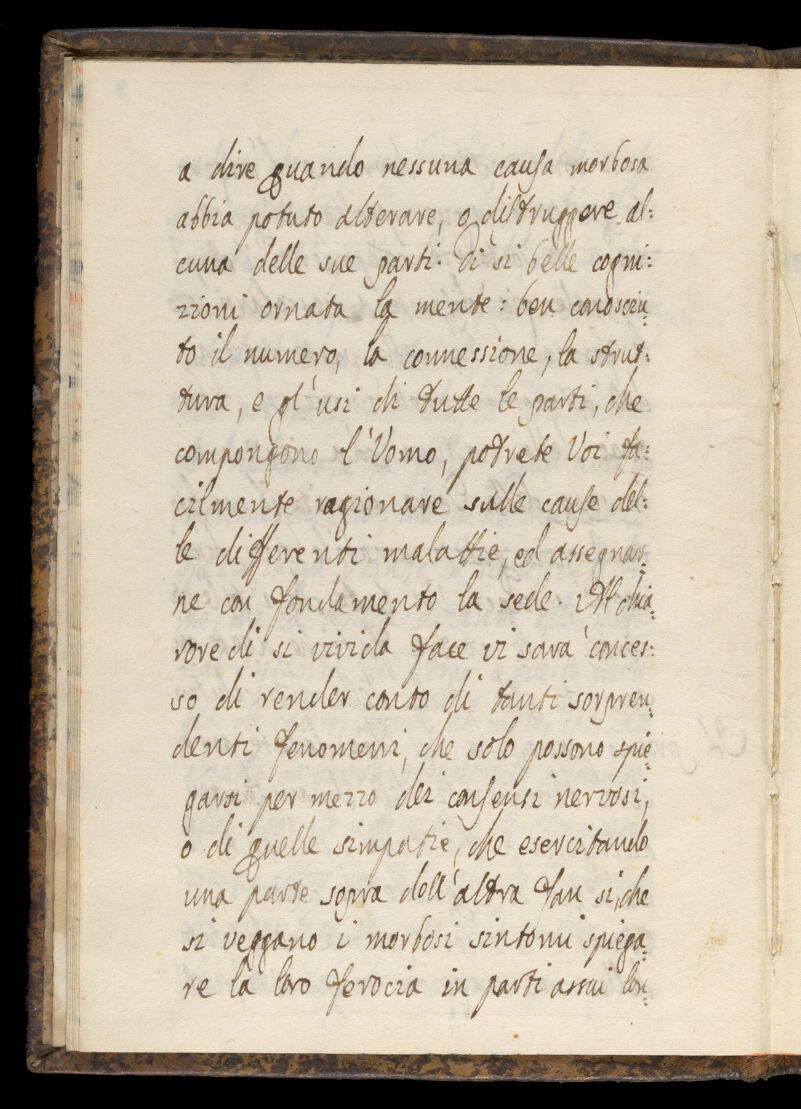 a dire quando nessuna causa morbosa
abbia potuto alterare, o distruggere al:
cuna delle sue parti. Di si belle cogni:
zioni ornata la mente: ben conosciu:
to il numero, la connessione, la strut:
tura, e gl'usi di tutte le parti, che
compongono l'Uomo, potrete Voi fa:
cilmente ragionare sulle cause del:
le differenti malattie, ed assegnar:
ne con fondamento la sede. Al chia:
rore di si vivida face vi sara' conces:
so di render conto di tanti sorpren:
denti fenomeni, che solo possono spie:
garsi per mezzo dei consensi nervosi,
o di quelle simpatie, che esercitando
una parte sopra dell'altra fan si, che
si veggano i morbosi sintomi spiega:
re la loro ferocia in parti assai lon: